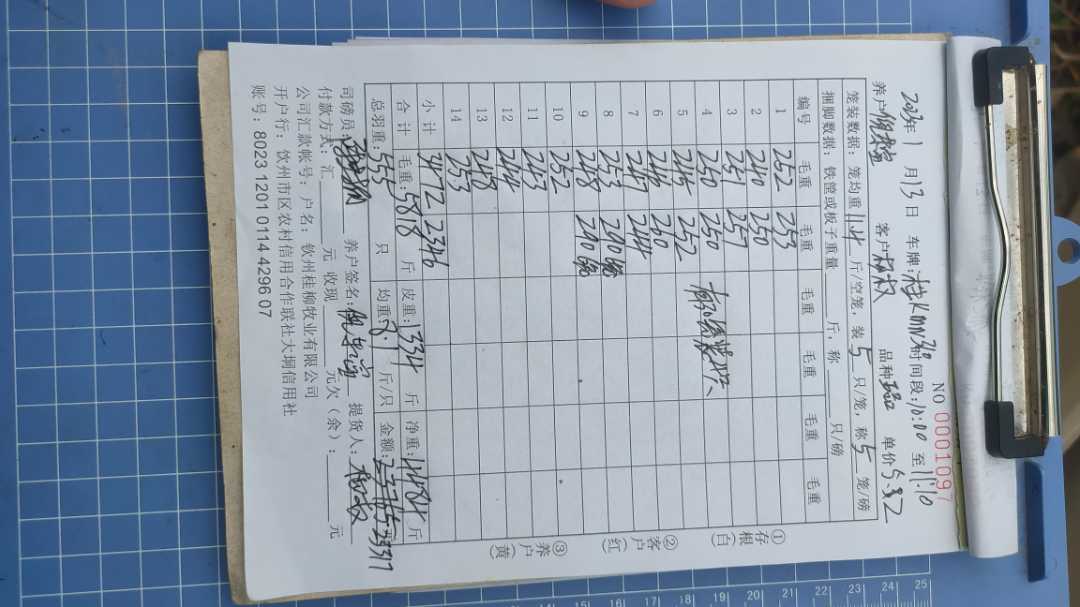 NO 0001097
2023年1月13日 车牌:桂K 时间段:10:00 至 11:10
养户 客户 品种 单价
笼装数据:笼均重11.4斤/空笼,装5只/笼,称5笼/磅
捆脚数据:铁筐或板子重量 斤,称 只/磅
编号 毛重 毛重 毛重 毛重 毛重 毛重
1 252 253
2 240 250
3 251 257
4 250 250
5 245 252
6 246 260
7 247 244
8 253
9 248
10 252
11 243
12 244
13 248
14 253
小计 3472 2346
合计 毛重:5818斤 皮重:1334斤 净重:4484斤
总羽重:555只 均重:8.1斤/只 金额:23317
司磅员: 养户签名: 提货人:
付款方式:汇 元 收现 元欠(余): 元
公司汇款帐号:户名:钦州桂柳牧业有限公司
开户行:钦州市区农村信用合作联社大垌信用社
账号:8023 1201 0114 4296 07
①存根(白)
②客户(红)
③养户(黄)
16 17 18 19 20 21 22 23 24 25